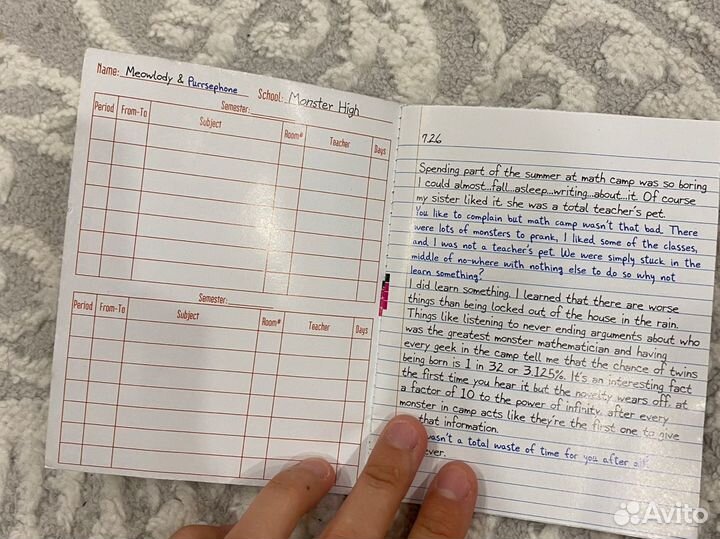 Name: Meowlody & Purrsephone School: Monster High
Semester:
Period From-To Subject Room# Teacher Days
Semester:
Period From-To Subject Room# Teacher Days
7.26
Spending part of the summer at math camp was so boring
I could almost...fall...asleep...writing...about...it. Of course
my sister liked it she was a total teacher's pet.
You like to complain but math camp wasn't that bad. There
were lots of monsters to prank, I liked some of the classes,
and I was not a teacher's pet. We were simply stuck in the
middle of no-where with nothing else to do so why not
learn something?
I did learn something. I learned that there are worse
things than being locked out of the house in the rain.
Things like listening to never ending arguments about who
was the greatest monster mathematician and having
every geek in the camp tell me that the chance of twins
being born is 1 in 32 or 3.125%. It's an interesting fact
the first time you hear it but the novelty wears off at
a factor of 10 to the power of infinity after every
monster in camp acts like they're the first one to give
that information.
wasn't a total waste of time for you after all
Avito